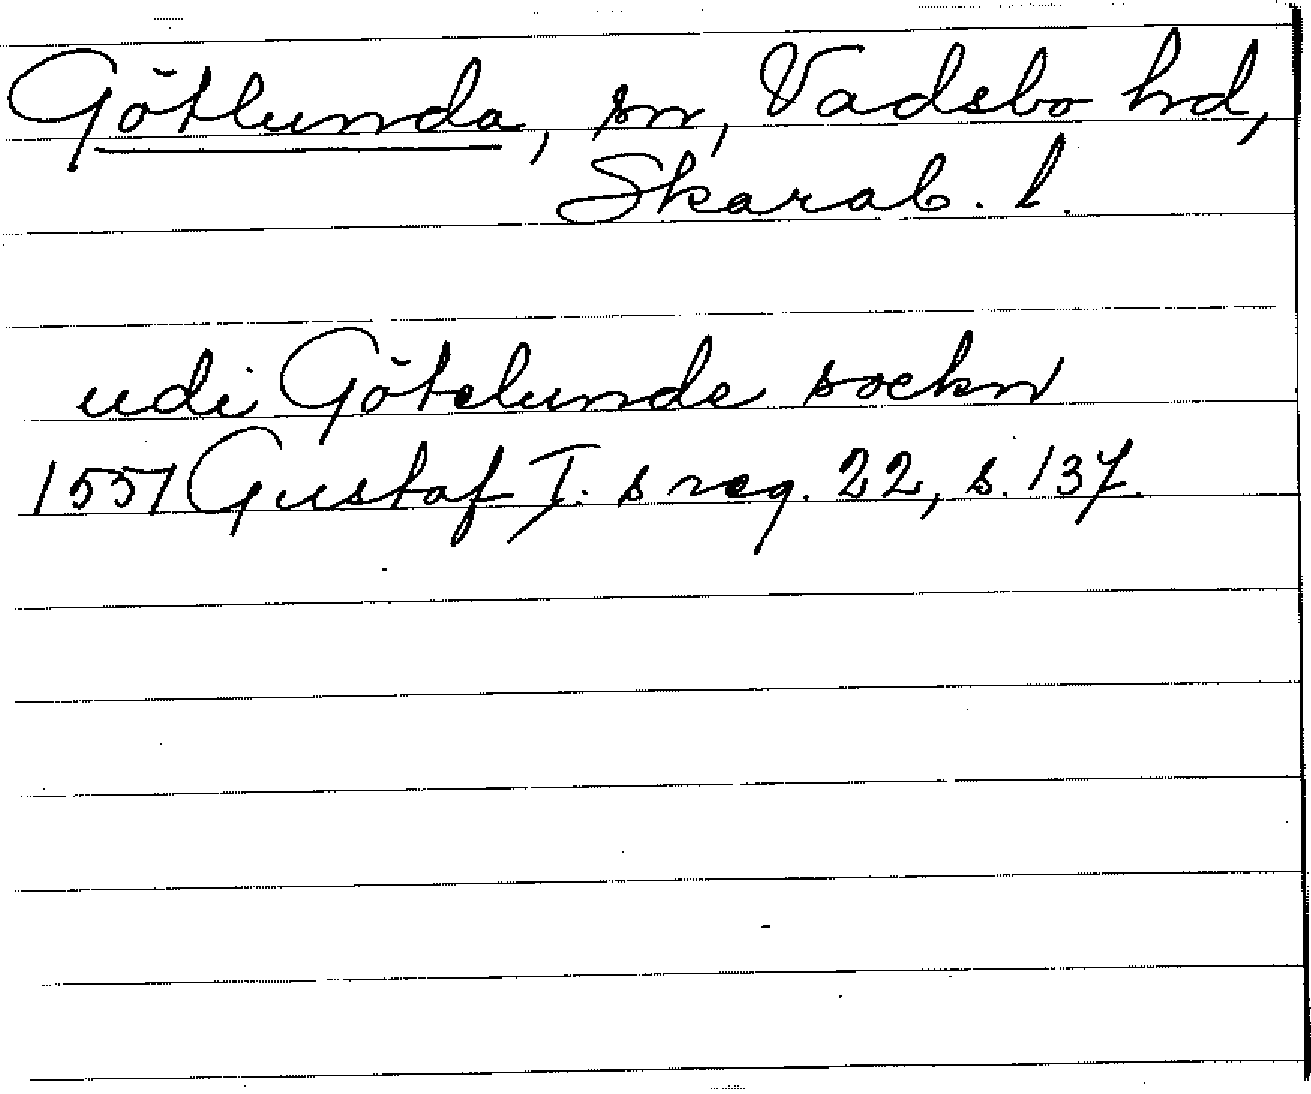 Götlunda, sn, Vadsbo hd,
Skarab. l.
udi Götelunde sockn
1551 Gustaf I.s reg. 22, s. 137.